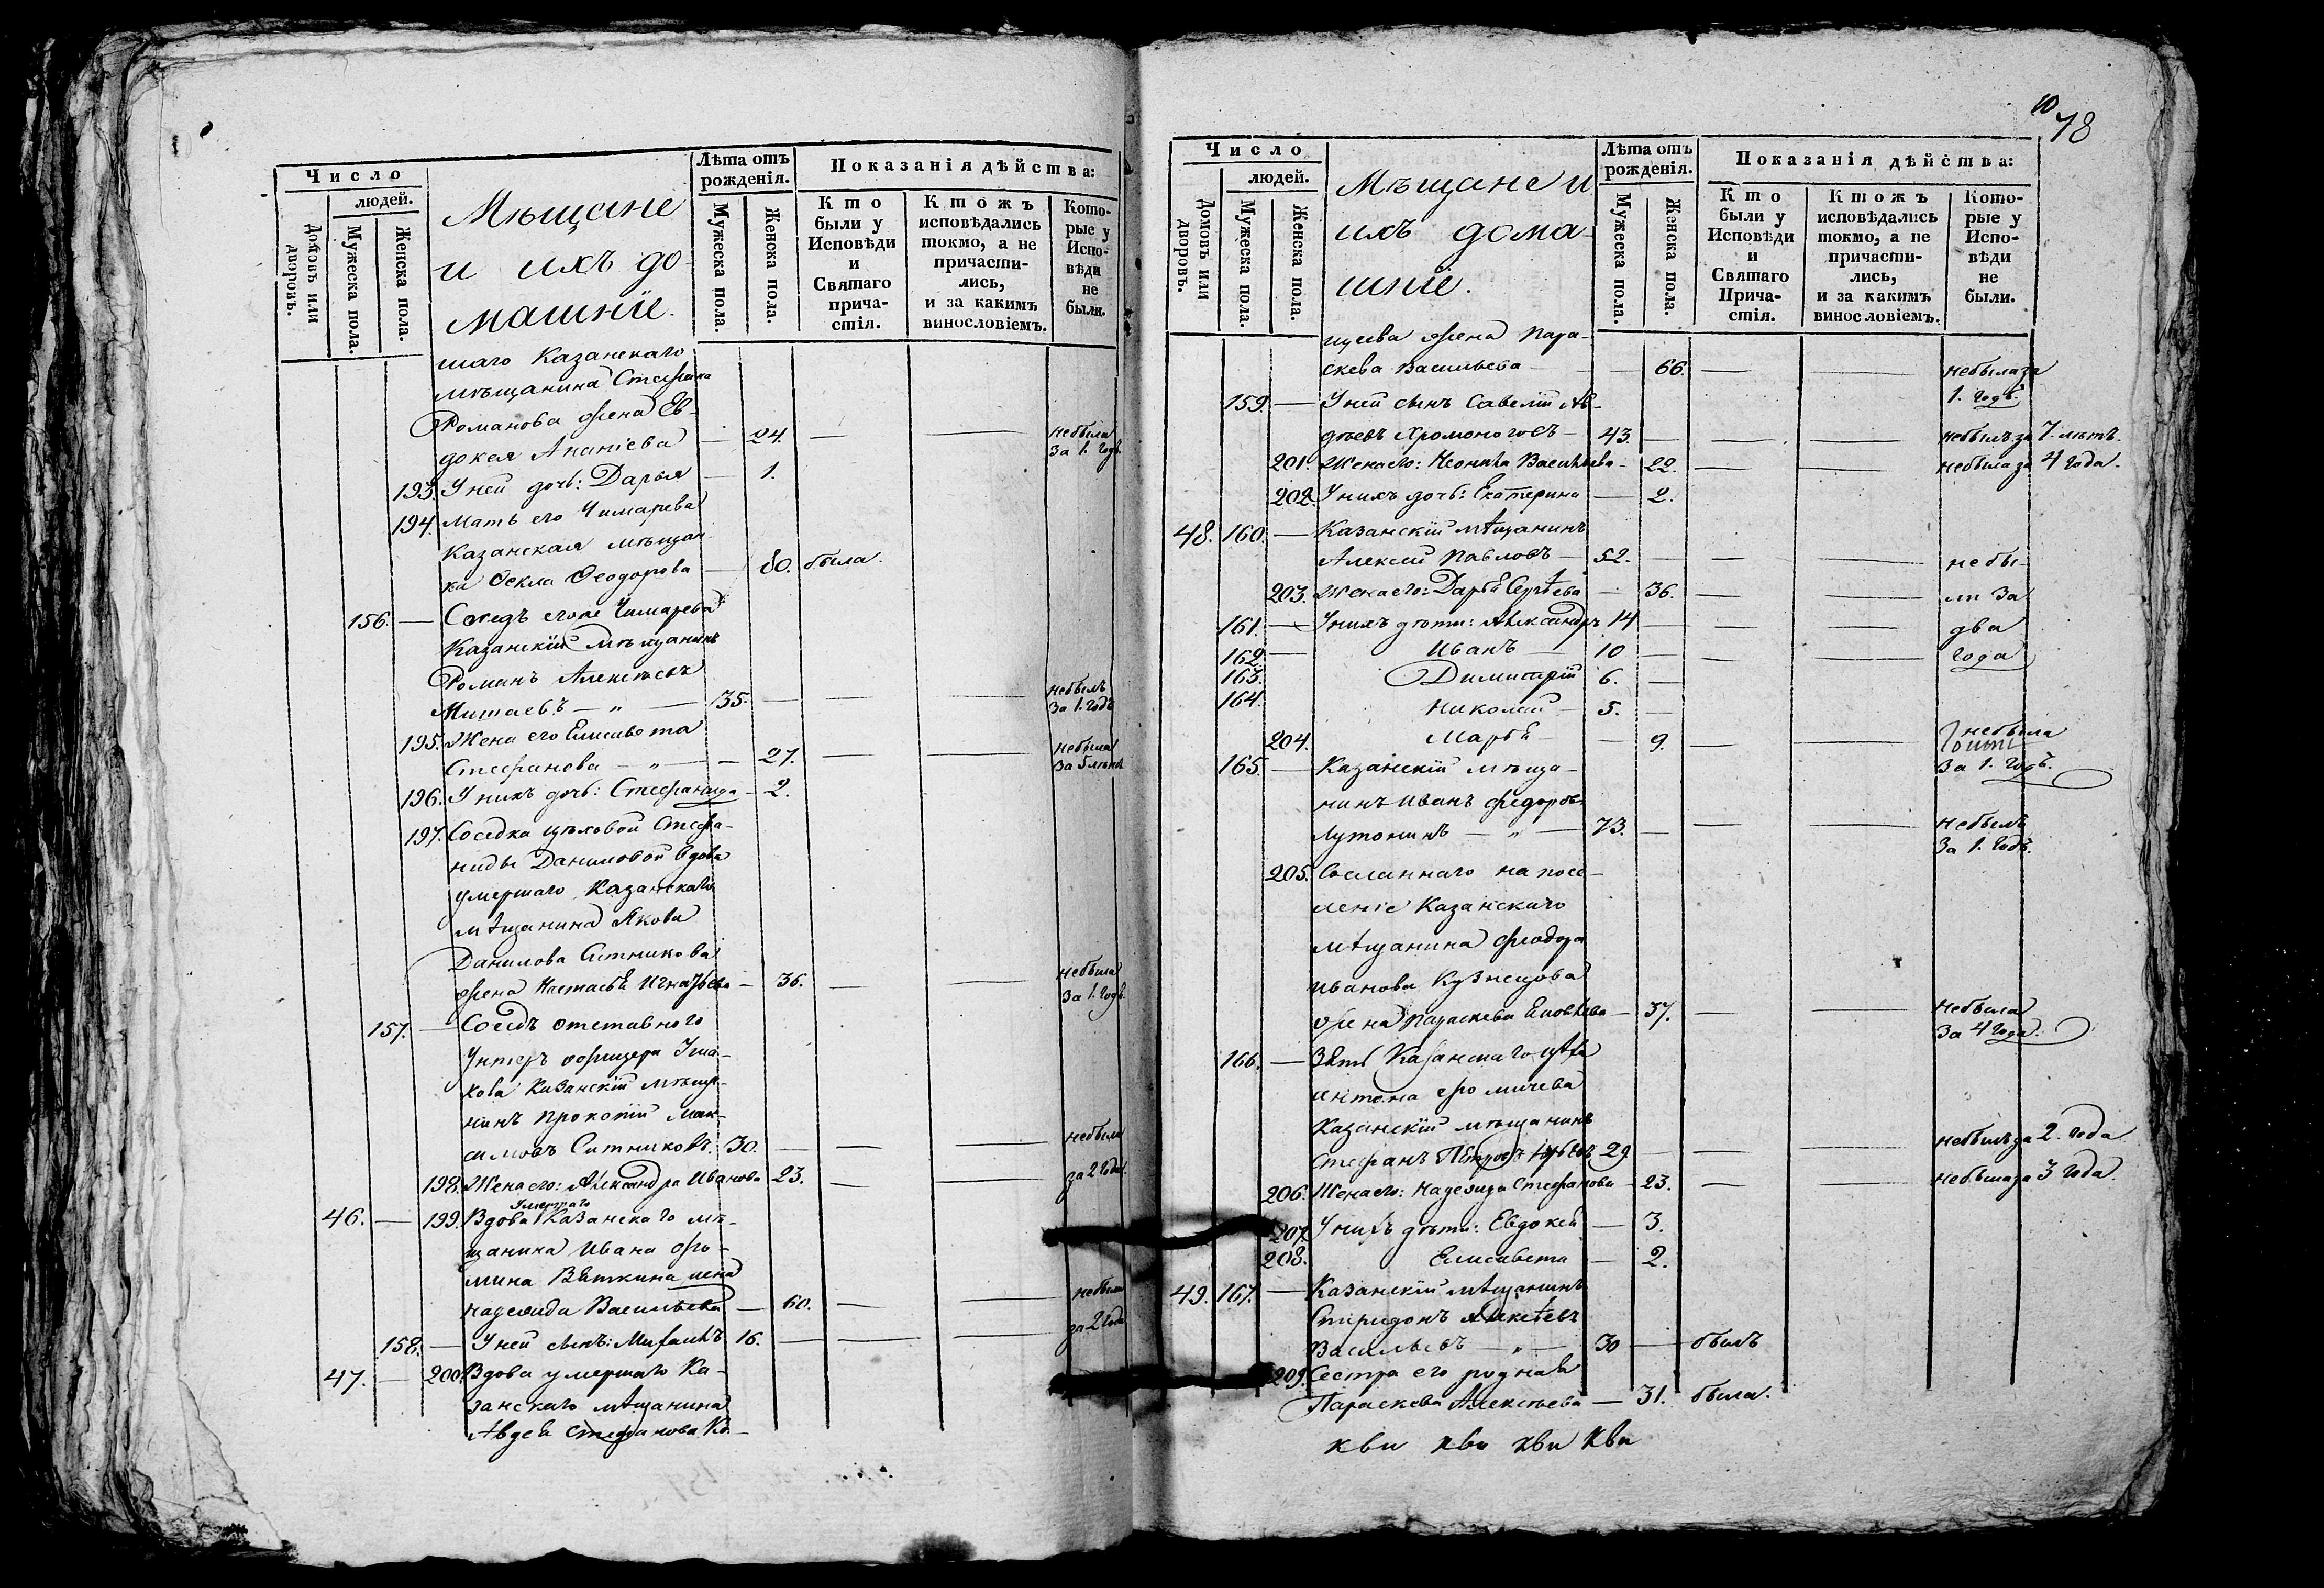 Число
людей.
Домовъ или дворовъ.
Мужеска пола.
Женска пола.
Мѣщане
и ихъ до-
машніе.
Лѣта отъ рожденія.
Мужеска пола.
Женска пола.
Показанія дѣйства:
Кто были у Исповѣди и Святаго причастія.
Ктожъ исповѣдались токмо, а не причастились, и за какимъ винословіемъ.
Которые у Исповѣди не были.
шаго Казанскаго
мѣщанина Стефана
Романова жена Ев-
докея Ананіева — 24. — — небыла за 1. годъ.
193. У ней дочь: Дарья — 1.
194. Мать его Чимарева
Казанская мѣщан-
ка Фекла Феодорова — 80. была.
156. — Соседъ егоже Чимарева
Казанскій мѣщанинъ
Романъ Алексѣевъ
Митаевъ — „ — 35. — — — небылъ за 1. годъ
195. Жена его Елисавета
Стефанова — „ — — 27. — — небыла за 5 лѣтъ
196. У нихъ дочь: Стефанида — 2.
197. Соседка цѣховой Стефа-
ниды Даниловой вдова
умершаго Казанскаго
мѣщанина Якова
Данилова Ситникова
жена Настасья Игнатьева — 36. — — небыла за 1. годъ.
157. — Соседъ отставнаго
Унтеръ офицера Уша-
кова Казанскій мѣща-
нинъ Прокопій Мак-
симовъ Ситниковъ. 30. — — — небыли
198. Жена его: Александра Иванова 23. — — за 2 года.
46. — 199. Вдова умершаго Казанскаго мѣ-
щанина Ивана Фо-
мина Вяткина жена
Надежда Васильева — 60. — — небыли
158. — У ней сынъ: Михаилъ 16. — — — за 2 года
47. — 200. Вдова умершаго Ка-
занскаго мѣщанина
Авдея Стефанова Ко-
10
78
Число
людей.
Домовъ или дворовъ.
Мужеска пола.
Женска пола.
Мѣщане и
ихъ дома-
шніе.
Лѣта отъ рожденія.
Мужеска пола.
Женска пола.
Показанія дѣйства:
Кто были у Исповѣди и Святаго Причастія.
Ктожъ исповѣдались токмо, а не причастились, и за какимъ винословіемъ.
Которые у Исповѣди не были.
щеева жена Пара-
скева Васильева — — 66. — — небыла за 1. годъ.
159. — У ней сынъ Савелій Ав-
дѣевъ Хромоноговъ — 43. — — — небылъ за 7. лѣтъ.
201. Жена его: Неонила Васильева — 22. — — небыла за 4 года.
202. У нихъ дочь: Екатерина — 2.
48. 160. — Казанскій мѣщанинъ
Алексей Павловъ — 52. — — — не бы-
203. Жена его: Дарья Сергѣева — 36. — — ли за
161. — У нихъ дѣти: Александръ 14 — — — два
162. — Иванъ — 10 — — — года
163. Димитрій 6. —
164. Николай — 5. —
204. Марья — 9. — — небыла
за 1. годъ.
165. — Казанскій мѣща-
нинъ Иванъ Федоровъ
Лутонинъ — „ — 73. — — — небылъ за 1. годъ.
205. Сосланнаго на посе-
леніе Казанскаго
мѣщанина Феодора
Иванова Кузнецова
жена Параскева — 37. — — небыла за 4 года.
166. — Зять Казанскаго
Антона Фомичева
Казанскій мѣщанинъ
Стефанъ Петровъ 29 — — — небылъ за 2. года
206. Жена его: Надежда Стефанова — 23. — — небыла за 3 года.
207. У нихъ дѣти: Евдокея — 3.
208. Елисавета — 2.
49. 167. — Казанскій мѣщанинъ
Спиридонъ Алексѣевъ
Васильевъ — „ — 30 — былъ
209. Сестра его родная
Параскева Алексѣева — 31. была.